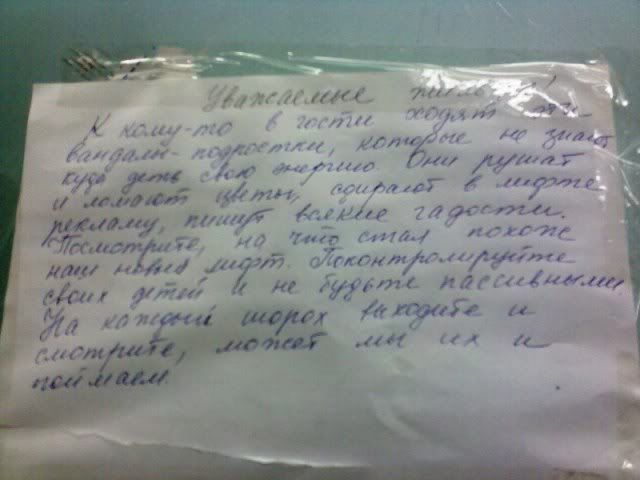 Уважаемые жильцы!
К кому-то в гости ходят эти
вандалы-подростки, которые не знают
куда деть свою энергию. Они рушат
и ломают цветы, сдирают в лифте
рекламу, пишут всякие гадости.
Посмотрите, на что стал похож
наш новый лифт. Поконтролируйте
своих детей и не будьте пассивными.
На каждый шорох выходите и
смотрите, может мы их и
поймаем.